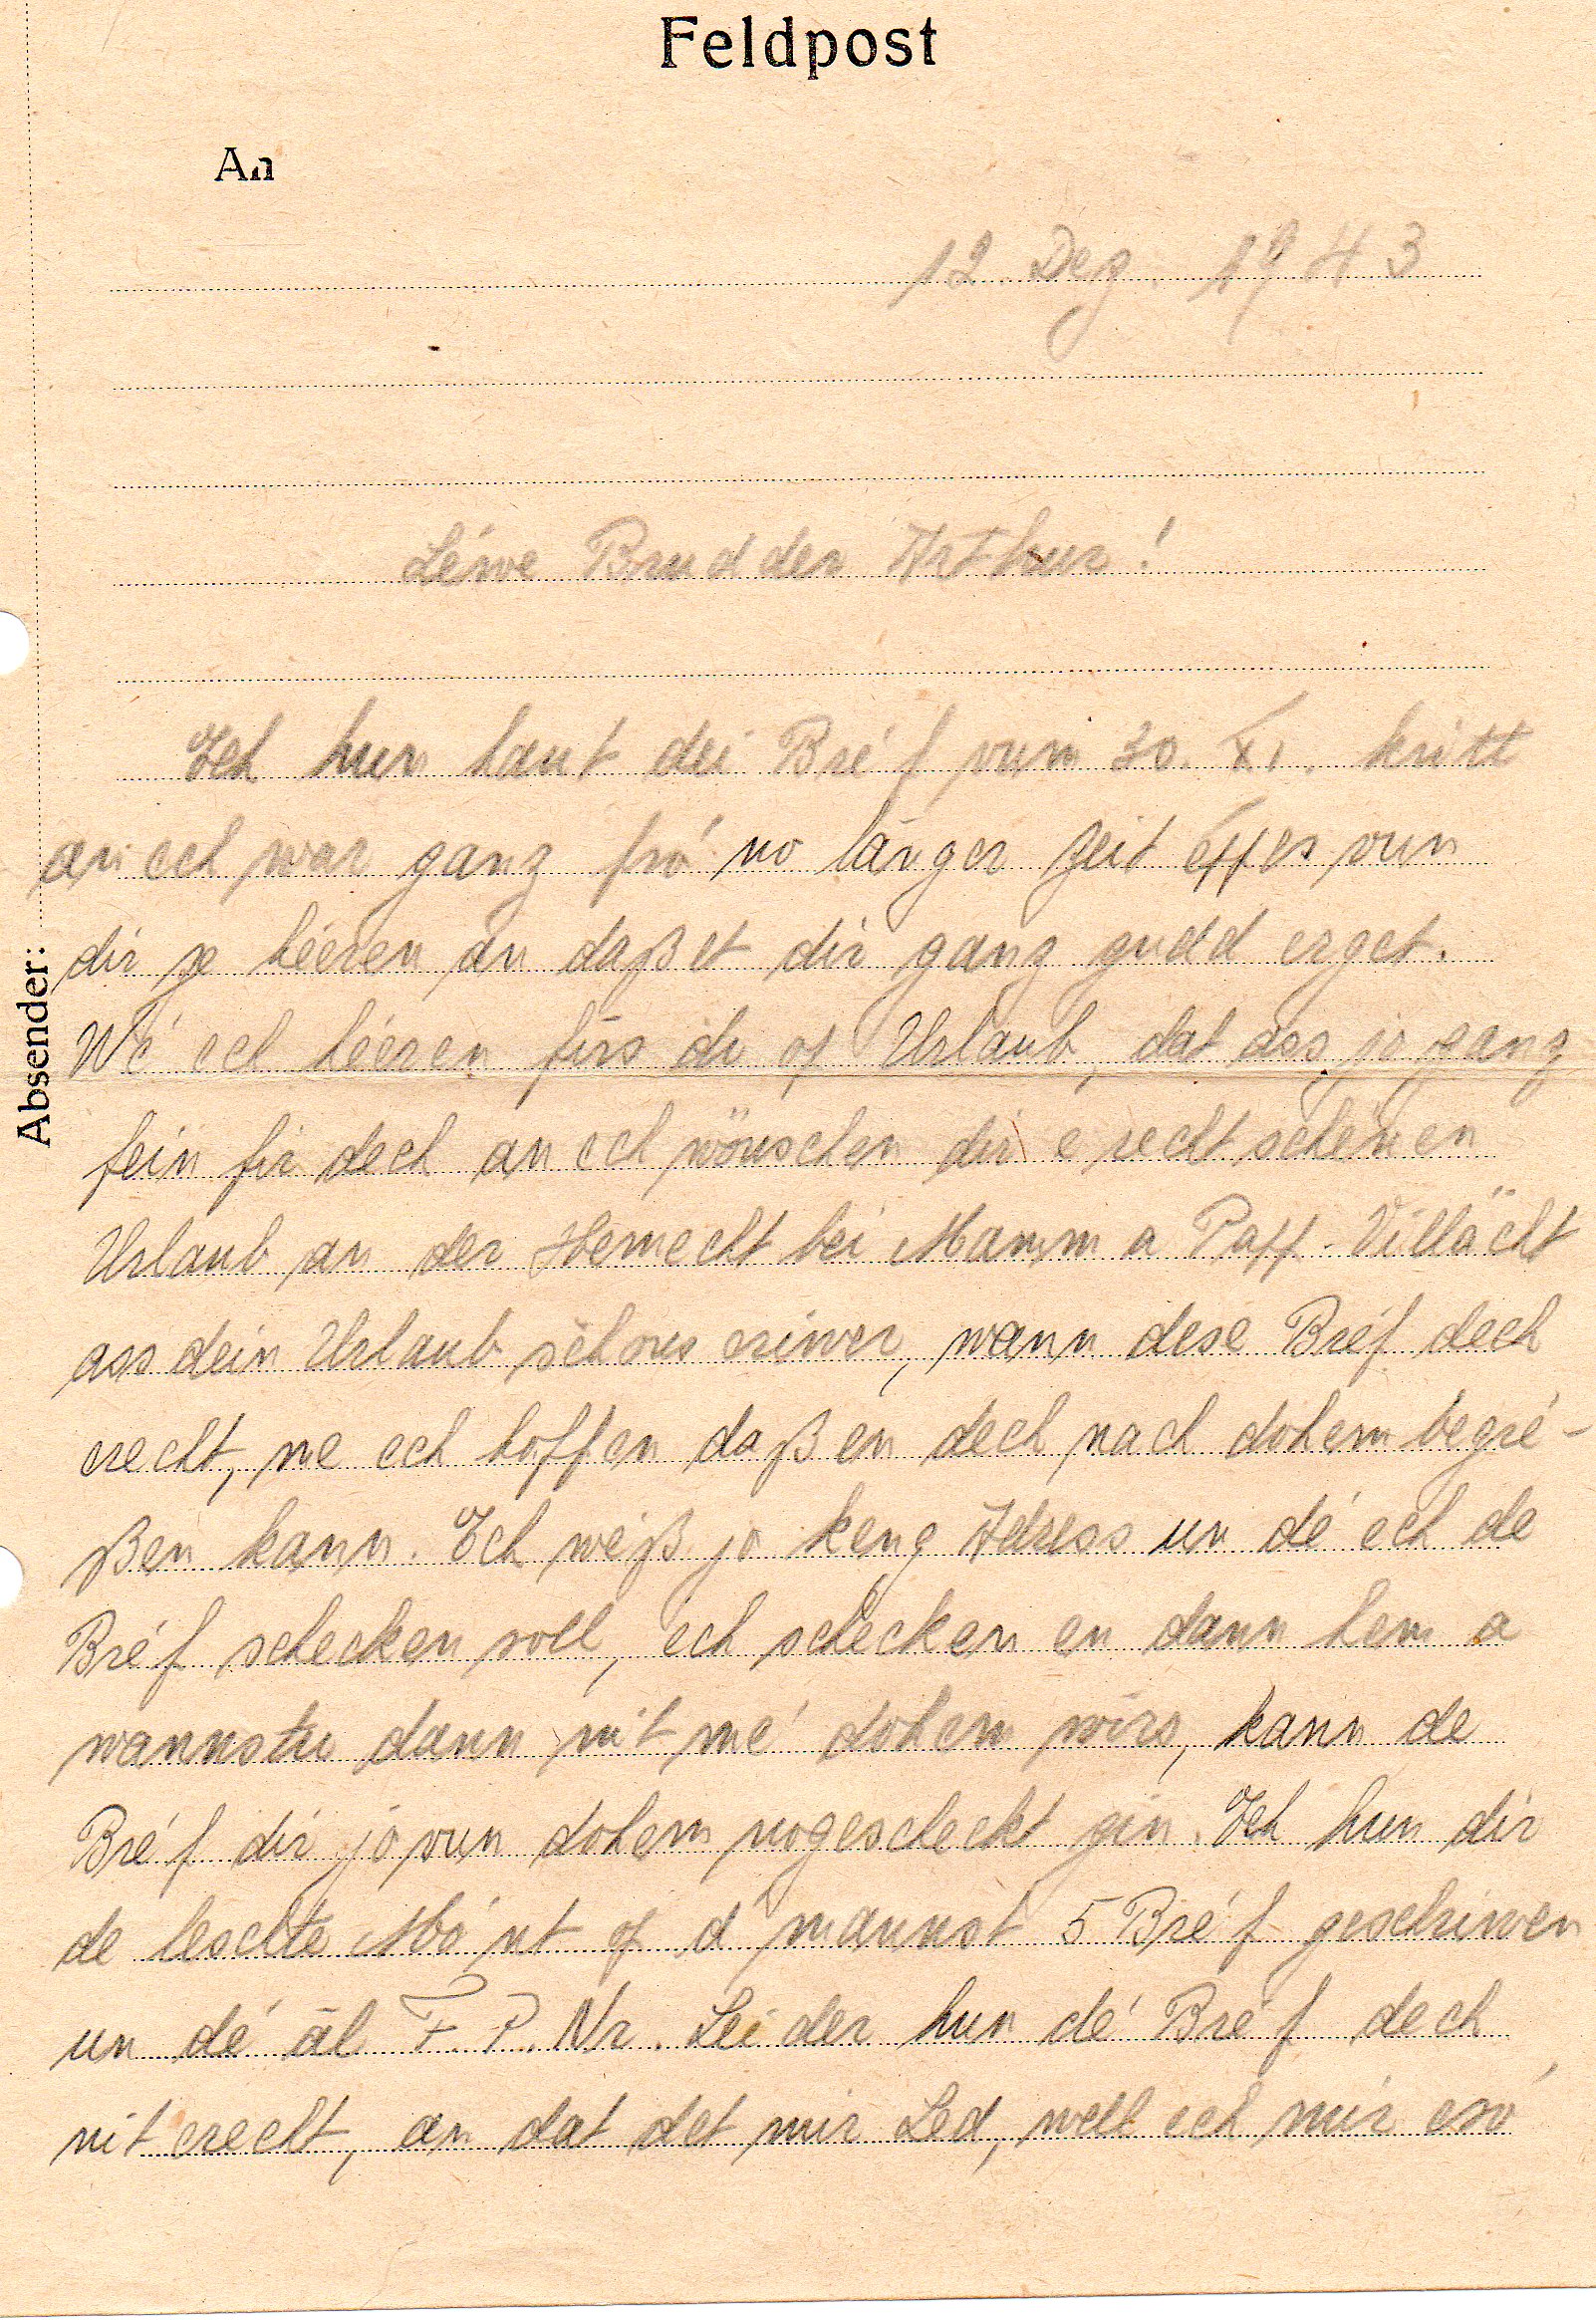 Feldpost
An
12. Dez. 1943
Léiwe Brudder Arthur!
Ech hun haut dei Bréf vum 30. XI. kritt
an ech war ganz fró no länger Zeit éppes vun
dir ze héeren an daß et dir ganz gudd erget.
Wé ech héeren firs du op Urlaub, dat ass jo ganz
fein fir dech an ech wönschen dir e recht schéinen
Urlaub an der Hemecht bei Mamm a Papp. Villäicht
ass dein Urlaub schons eriwer, wann dese Bréf dech
erecht, me ech hoffen daß en dech nach dohem begré-
ßen kann. Ech weß jo keng Adress un dé ech de
Bréf schecken soll, ech schecken en dann hem a
wannstu dann nit mé dohem wirs, kann de
Bréf dir jo vun dohem nogescheckt gin. Ech hun dir
de leschte Mó'nt op d' mannst 5 Bréf geschriwen
un dé āl F.P.Nr. Leider hun dé Bréf dech
nit erecht, an dat det mir Led, well ech mir esó
Absender: